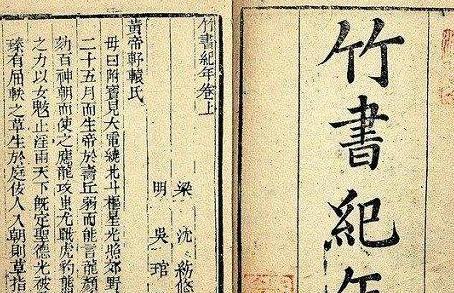 竹書紀年
竹書紀年卷上
梁沈約
明吳琯
黃帝軒轅氏
母曰附寶見大電繞北斗樞星光照郊野
二十五月而生帝於壽丘弱而能言龍顏
劾百神朝而使之應龍攻蚩尤戰虎豹熊
之力以女魃止淫雨天下既定聖德光被
臻有屈軼之草生於庭佞人入朝則草指